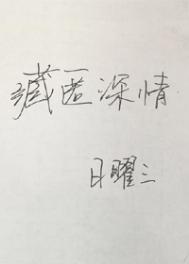 藏匿深情
日曜三